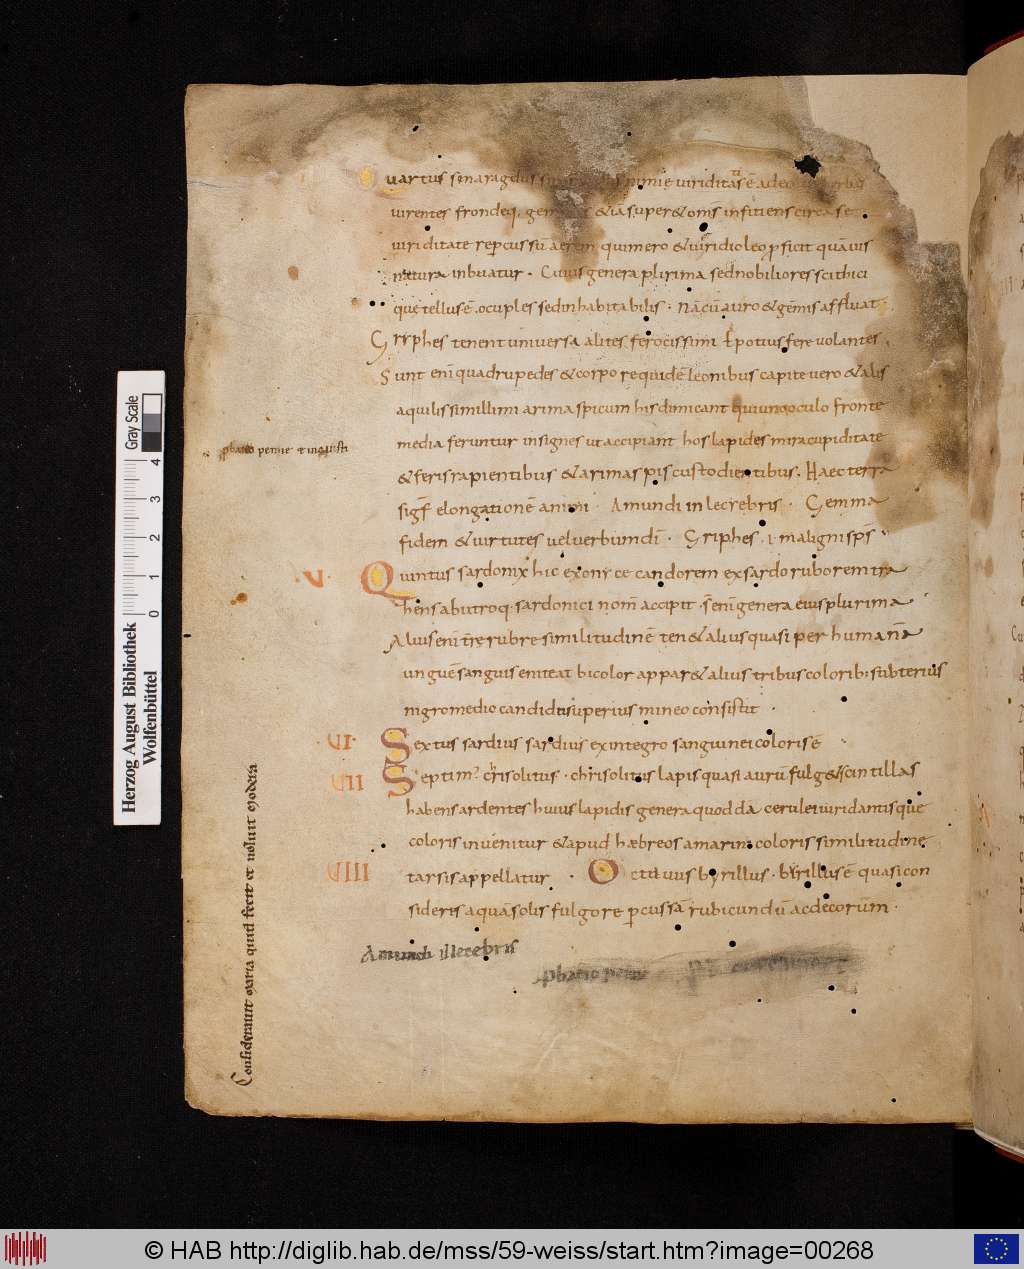 uartus smaragdus nimie uiriditatis ē adeo
uirentes frondeq; gemmas &iā super& om̄s inficiens circa se
uiriditate repercussū aerem qui mero &uiridi oleo ꝓficit quāuis
natura inbuatur. Cuius genera plurima sed nobiliores scithici
que tellus ē locuples sed inhabitabilis. Nā cū auro &gēmis affluat
Griphes tenent uniuersa alites ferocissimi ł potius fere uolantes.
Sunt eni quadrupedes &corpore quidē leonibus capite uero &alis
aquilis simillimi arimaspi cum his dimicant qui uno oculo fronte
media feruntur insignes ut accipiant hos lapides mira cupiditate
&feris rapientibus &arimaspis custodientibus. Haec terra
sigf elongationē animi. A mundi inlecebris. Gemma
fidem &uirtutes uel uerbum dī. Griphes .i. maligni sps̄
.V. Quintus sardonix hic ex onyce candorem ex sardo ruborem tra
hens ab utroq; sardonici nom̄ accipit. s̄ eni genera eius plurima
Alius eni tr̄e rubre similitudinē ten& alius quasi per humanā
unguē sanguis eniteat bicolor appar& alius tribus colorib; subterius
nigro medio candidus superius mineo consistit.
.VI. Sextus sardius sardius ex integro sanguinei coloris ē
VII Septim' crisolitus. chrisolitus lapis quasi aurū fulg& scintillas
habens ardentes huius lapidis genera quoddā cerulei uiridantisque
coloris inuenitur &apud hæbreos a marini coloris similitudine
VIII tarsis appellatur. Octauus byrillus. byrillus ē quasi con
sideris aquā solis fulgore ꝑcussa rubicundū ac decorum.
A mundi illecebris
phano penne
Considerauit maria quid fecit et noluit
Herzog August Bibliothek
Wolfenbüttel
0 1 2 3 4
Gray Scale
© HAB http://diglib.hab.de/mss/59-weiss/start.htm?image=00268